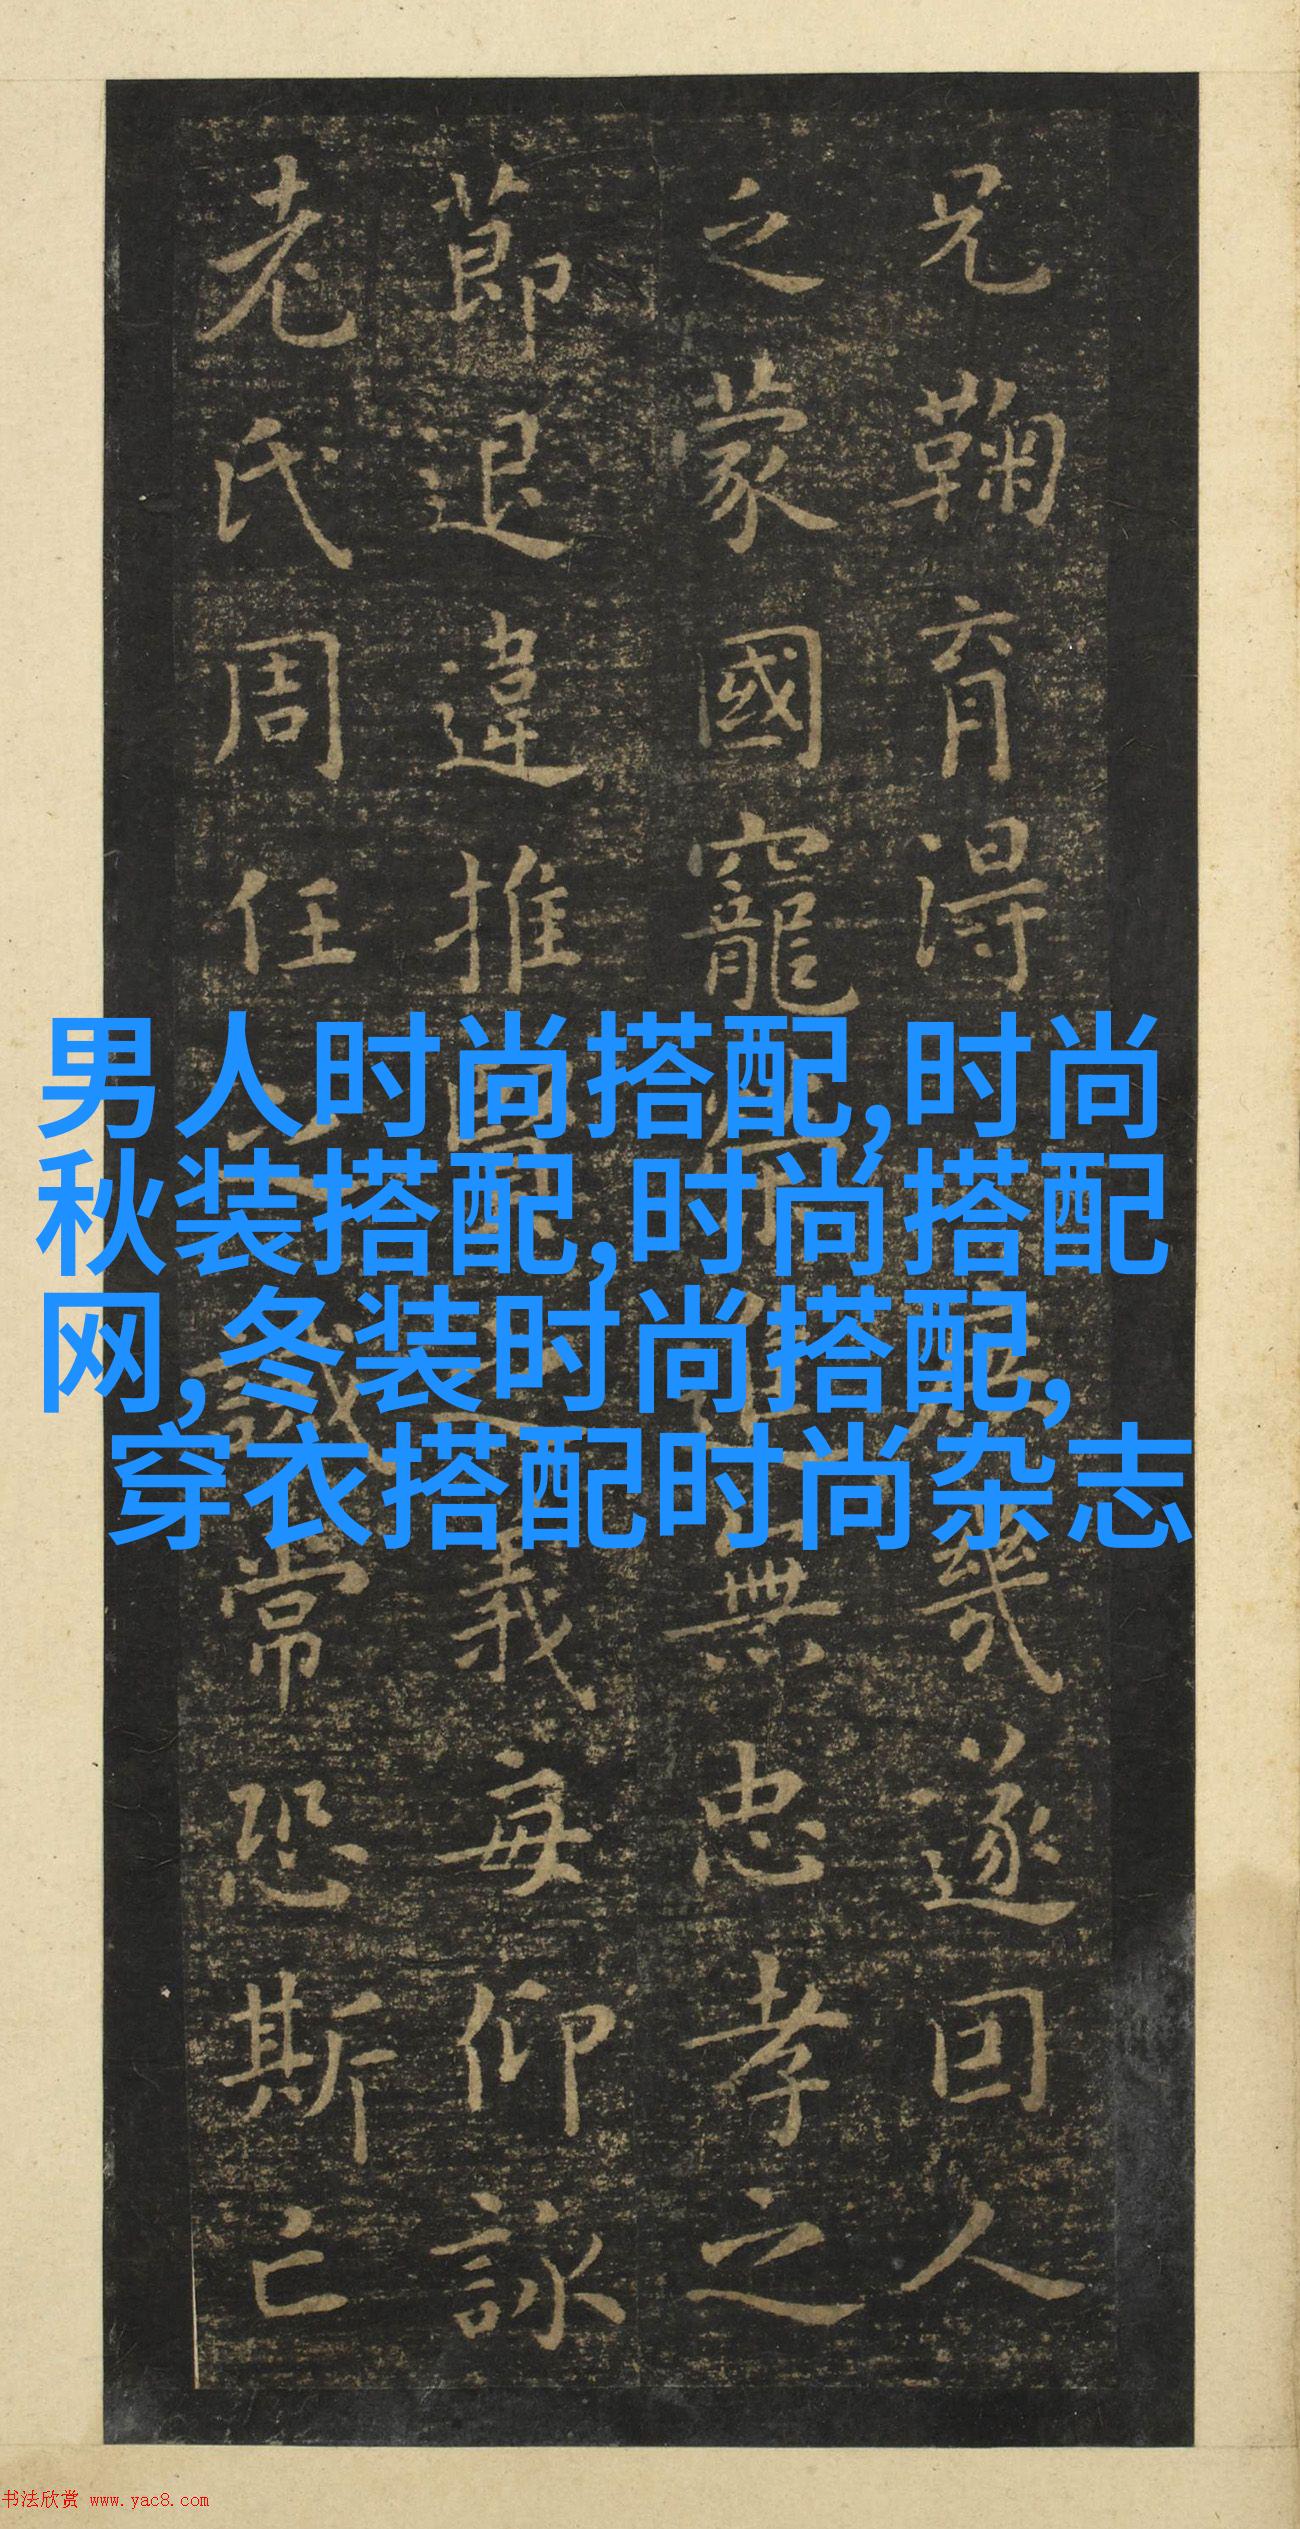 兄鞠育得庶幾遂因人
之蒙國寵榮進無忠孝之
節退違推賢之義每仰詠
老氏周任之誡常恐斯亡
男人时尚搭配,时尚
秋装搭配,时尚搭配
网,冬装时尚搭配,
穿衣搭配时尚杂志
书法欣赏 www.yac8.com